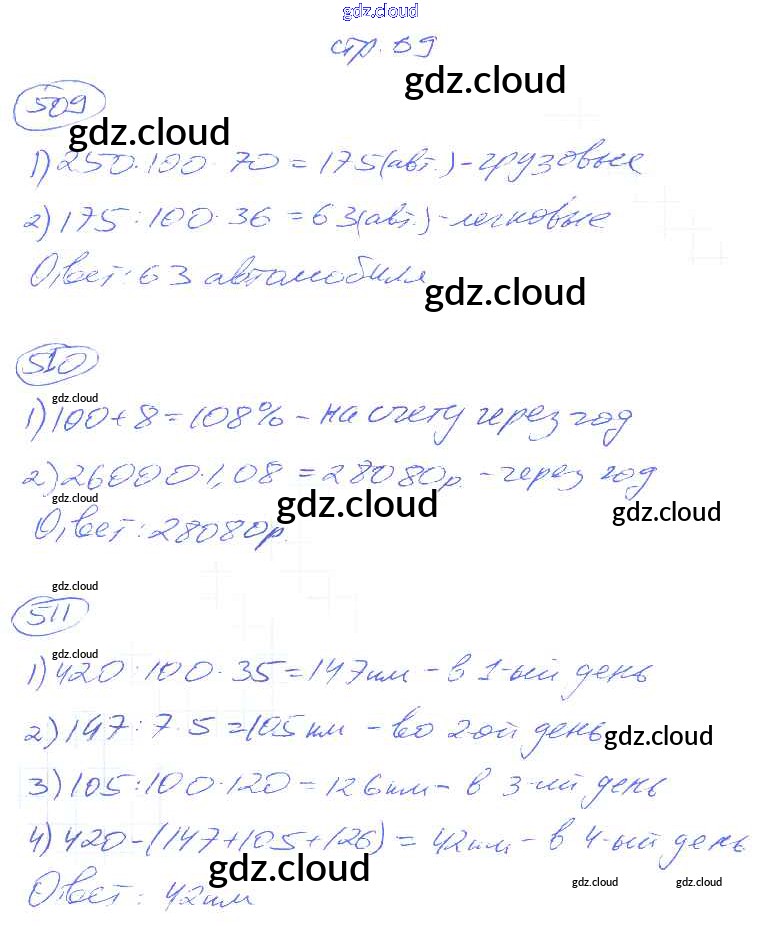 gdz.cloud
стр. 89
gdz.cloud
509
gdz.cloud
1) 250:100·70=175(авт.)-грузовые
2) 175:100·36=63(авт.)-легковые
Ответ: 63 автомобиля
gdz.cloud
510
gdz.cloud
1) 100+8=108% - на счету через год
2) 26000·1,08=28080р. - через год
gdz.cloud
gdz.cloud
gdz.cloud
Ответ: 28080р.
gdz.cloud
511
gdz.cloud
1) 420:100·35=147км - в 1-ый день
2) 147:7·5=105км - во 2ой день
gdz.cloud
3) 105:100·120=126км - в 3-ий день
4) 420-(147+105+126)=42км - в 4-ый день
gdz.cloud
Ответ: 42км
gdz.cloud gdz.cloud